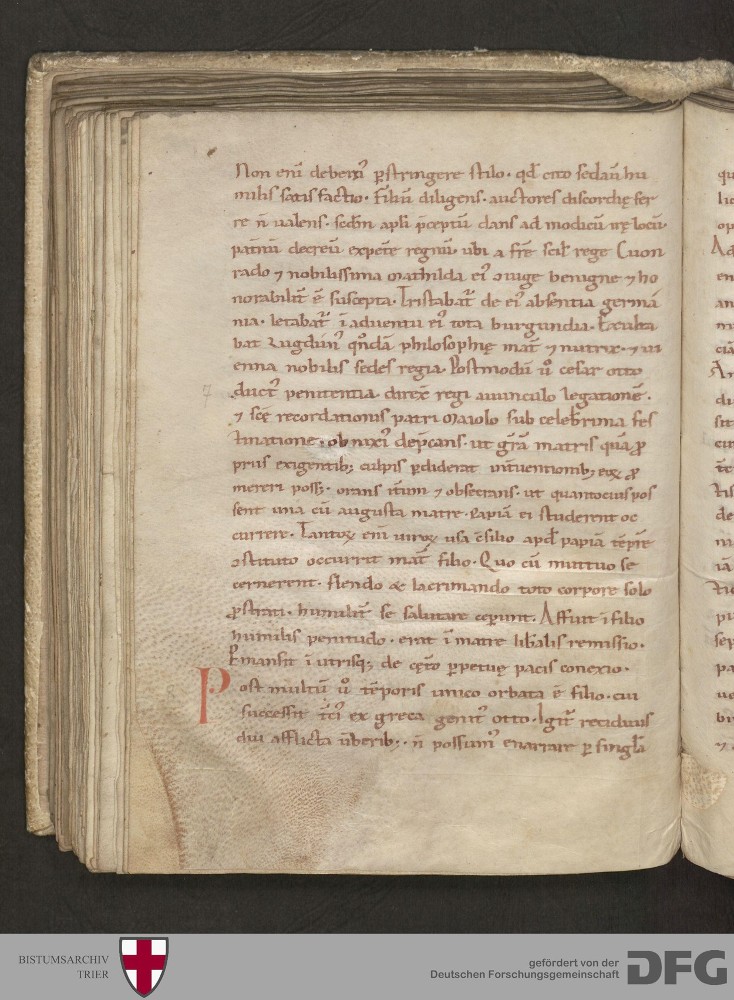 Non enī deberem᷒ ꝑstringere stilo · qd̄ cito sedauit hu
milis satis factio · Filiū diligens · auctores discordię fer
re n̄ ualens · scd̄m apl̄i p̄ceptū dans ad modicū irę locū ·
patnū decreuit expete᷒ regnū · ubi a fr̄e scil᷒ rege Cuon
rado ⁊ nobilissima Mathilda ei᷒ iuge benigne ⁊ ho
norabilit᷒ ē suscepta · Tristabat᷒ de ei᷒ absentia germa
nia · letabat᷒ ī aduentu ei᷒ tota burgundia · Exulta
bat Lugdun᷒ qn̄dā philosophię mat᷒ ⁊ nutrix · ⁊ ui
enna nobilis sedes regia · Postmodū u᷒o cesar otto
duct᷒ penitentia · direx᷒ regi auunculo legationē ·
⁊ sc̄ę recordationis patri Maiolo sub celeberrima fes
tinatione · ob nixi᷒ dep̄cans · ut gr̄am matris quā ꝓ
priis exigentibꝫ culpis ꝑdiderat int᷒uentionibꝫ eoꝝ ꝓ
mereri possꝫ · orans it᷒um ⁊ obsecrans · ut quantocius pos
sent una cū augusta matre · Papiā ei studerent oc
currere · Tantoꝝ enī uiroꝝ usa c̄silio apd᷒ papiā tēpr̄e
ↄstituto occurrit mat᷒ filio · Quo cū muttuo se
cernerent · flendo & lacrimando toto corpore solo
ꝓstrati · humilit᷒ se salutare ceperunt · Affuit ī filio
humilis penitudo · erat ī matre lib᷒alis remissio ·
Pemansit ī utrisqꝫ de cęto ꝑpetuę pacis conexio ·
Post multū u᷒o tēporis unico orbata ē filio · cui
successit t᷒ci᷒ ex greca genit᷒ otto · Igit᷒ recidiuis
diu afflicta u᷒beribꝫ · n̄ possum᷒ enarrare ꝑ singl̄a
BISTUMSARCHIV
TRIER
gefördert von der
Deutschen Forschungsgemeinschaft
DFG